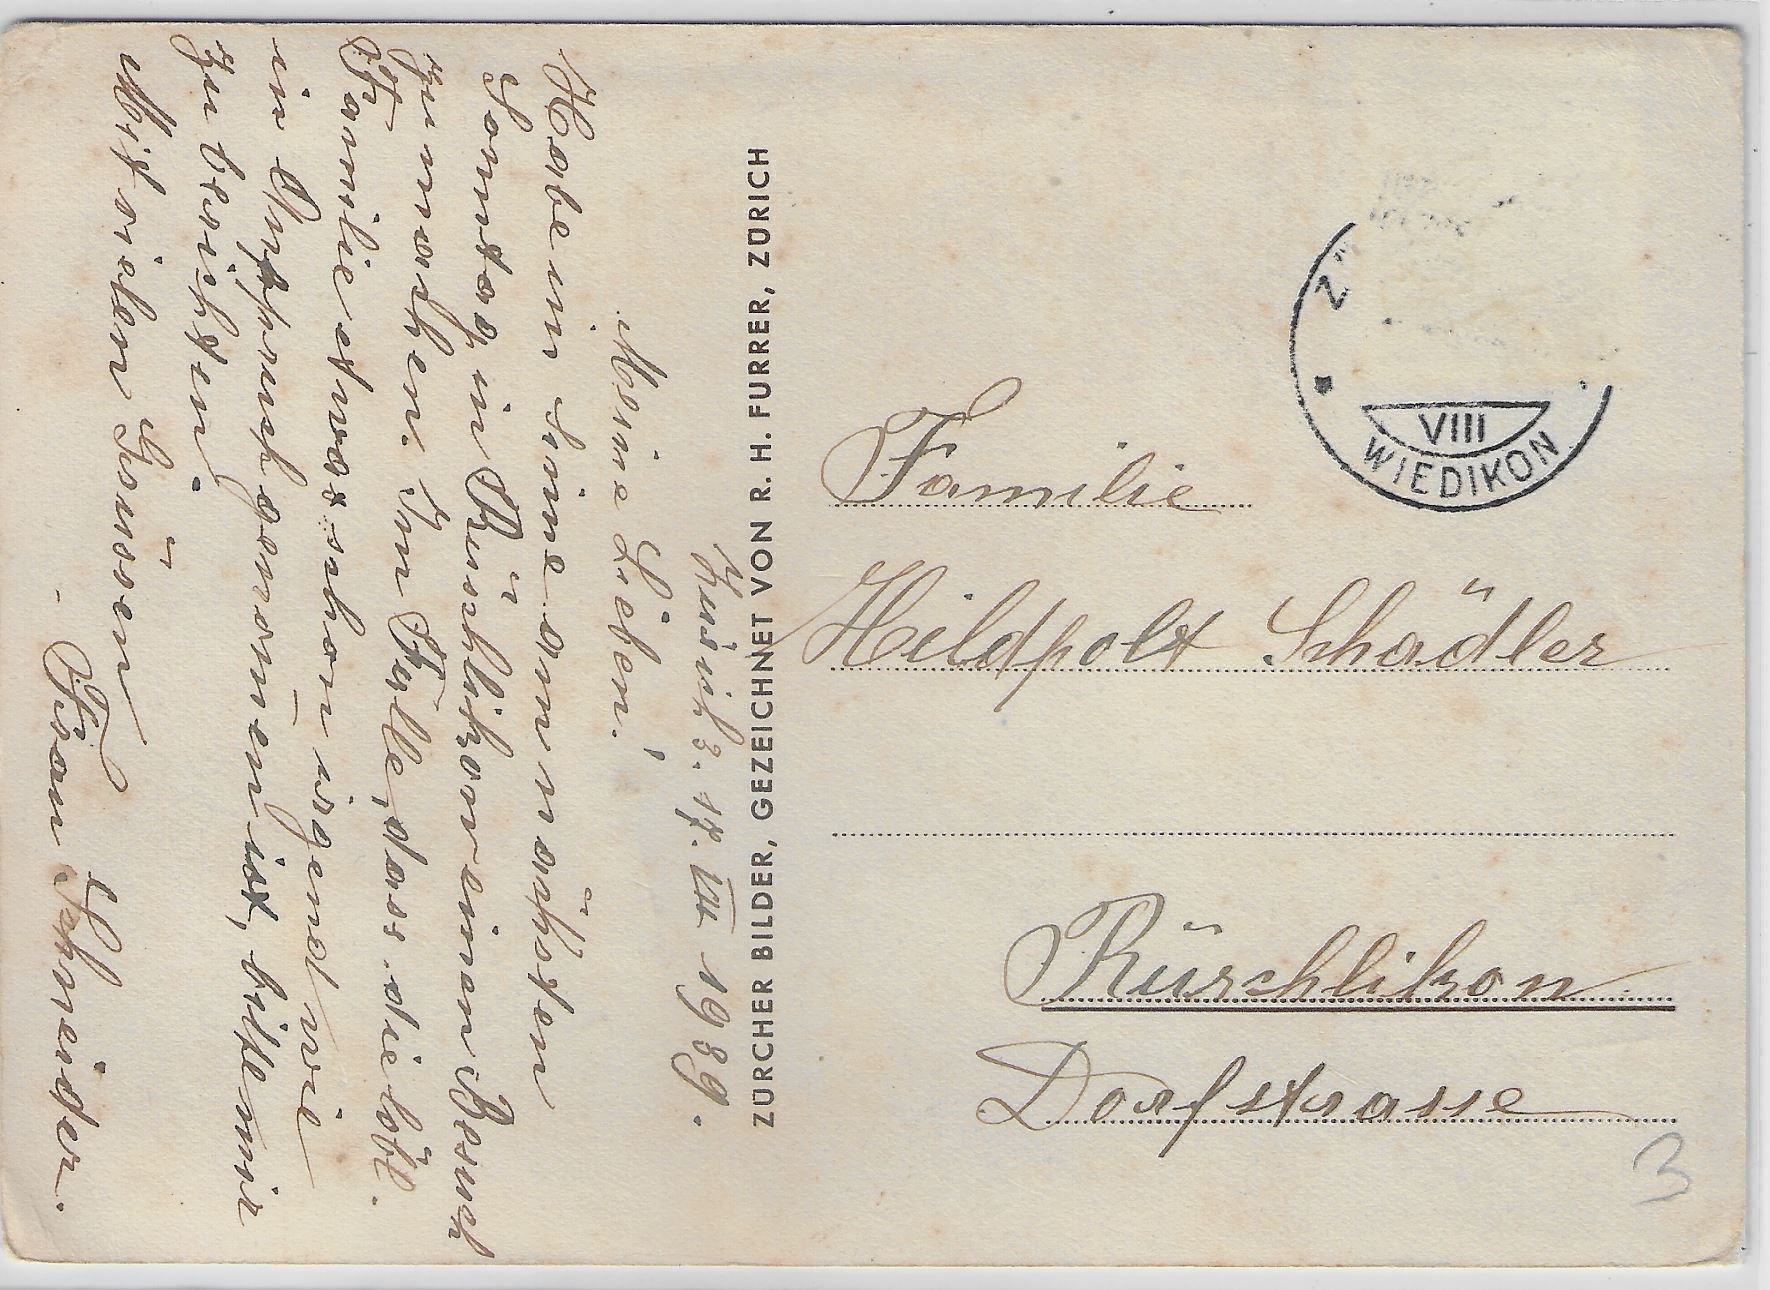 Zürich 3. 17. VIII 1939.
Meine Lieben!
Habe im Sinne am nächsten
Sonntag in Rüschlikon einen Besuch
zu machen. Im Falle, dass die löbl.
Familie etwas schon irgend wie
in Anspruch genommen ist, bitte mir
zu berichten.
Mit vielen Grüssen
Frau Schneider.
ZÜRCHER BILDER, GEZEICHNET VON R. H. FURRER, ZÜRICH
VIII
WIEDIKON
Familie
Hildpolt Schädler
Rüschlikon
Dorfstrasse
3